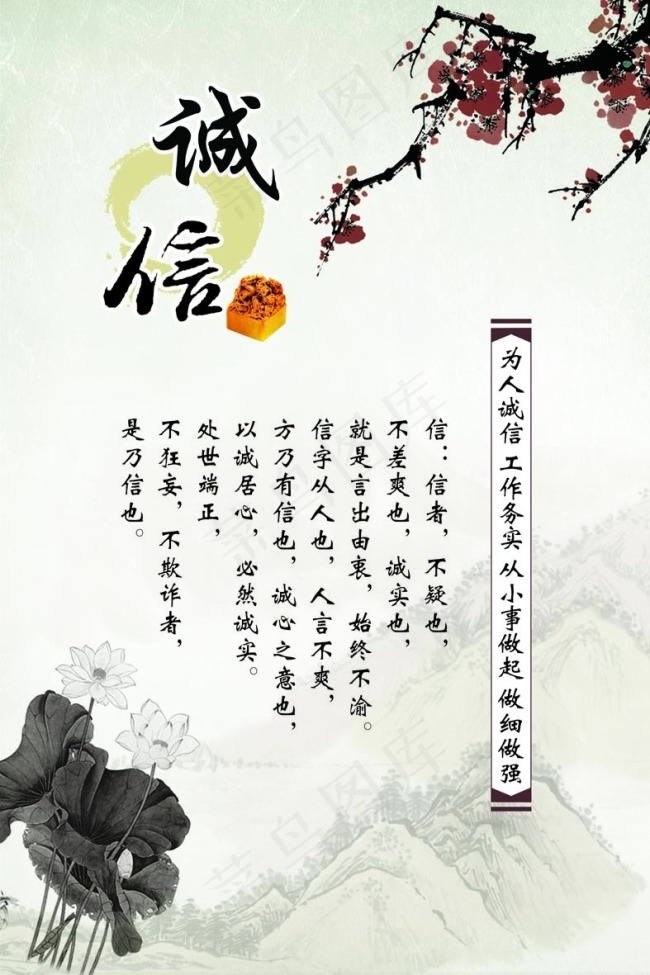 诚信
为人诚信 工作务实 从小事做起 做细做强
信：信者，不疑也，
不差爽也，诚实也，
就是言出由衷，始终不渝。
信字从人也，人言不爽，
方乃有信也，诚心之意也，
以诚居心，必然诚实。
处世端正，
不狂妄，不欺诈者，
是乃信也。
菜鸟图库
菜鸟图库
菜鸟图库